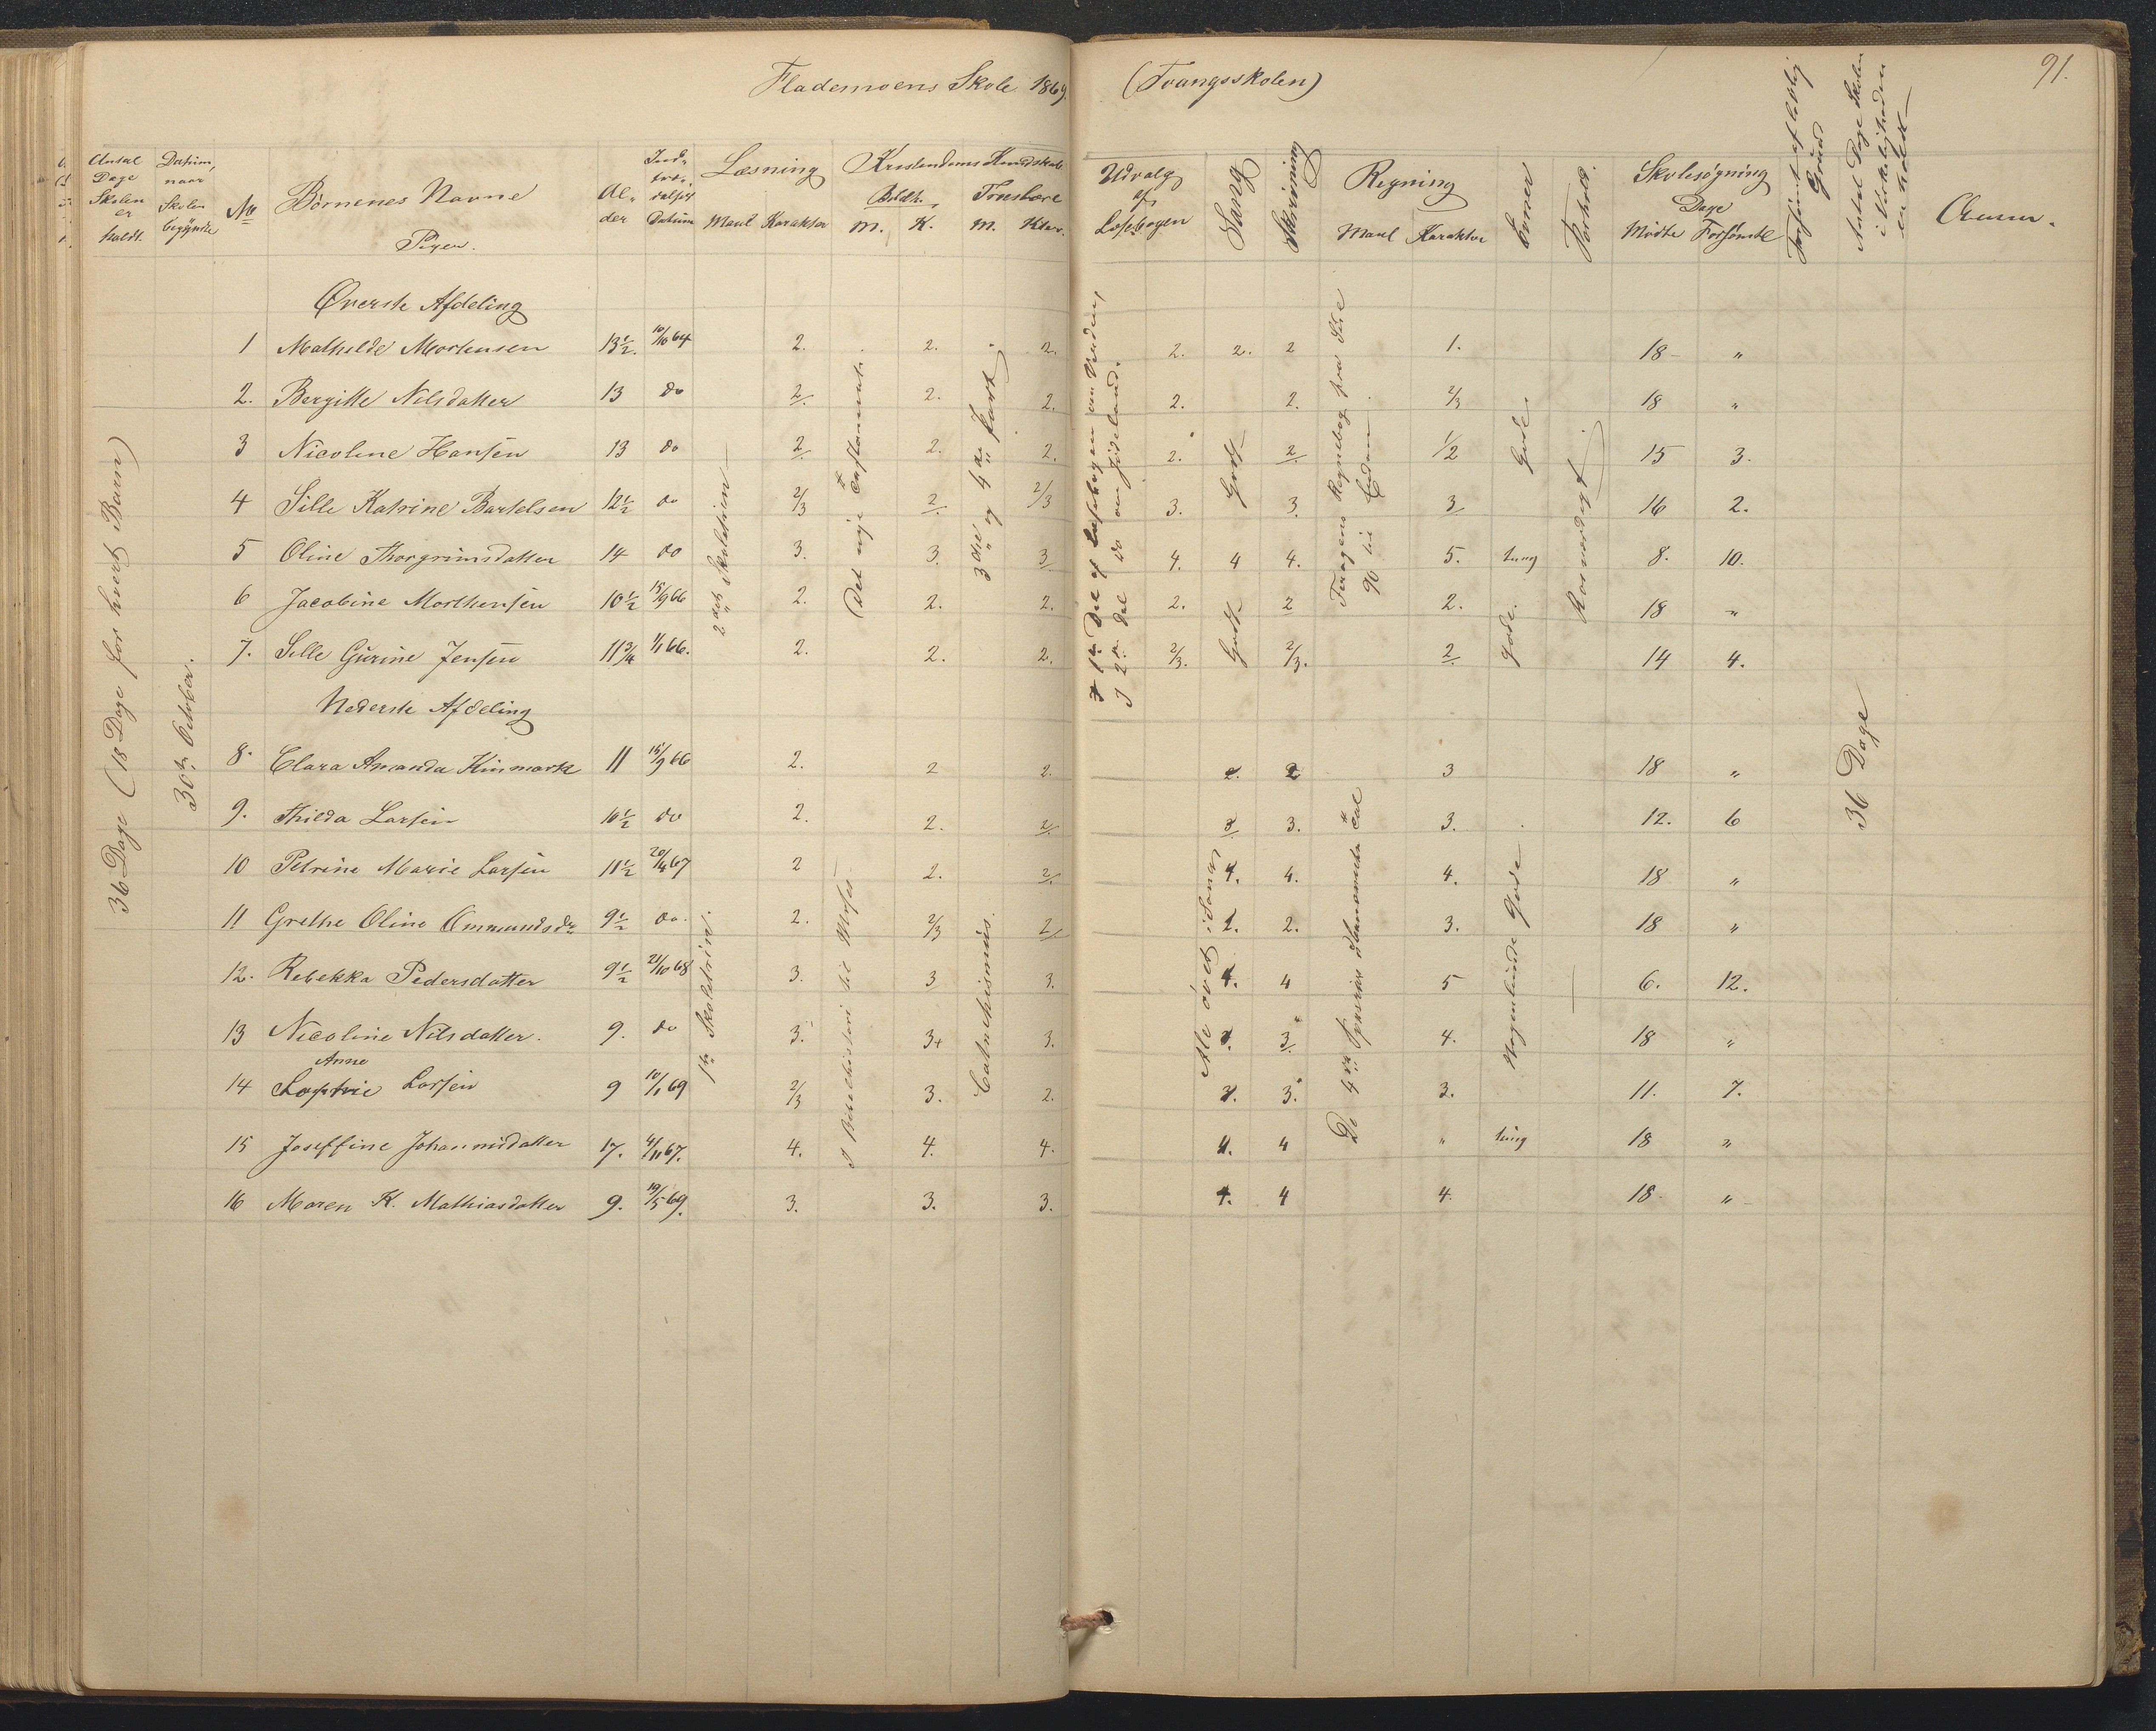 Flademoens Skole 1869. (Tvangsskolen)
91.
Antal Dage Skolen er holdt.
Datum, naar Skolen begyndte
No
Børnenes Navne
Piger.
Al- der
Ind- træ- delses Datum
Læsning
Maal Karakter
Kristendoms Kundskab
Bibelh. M. K.
Troeslære M. Kkar.
Udvalg af Læsebogen
Sang
Skrivning
Regning
Maal Karakter
Evner
Forhold.
Skolesøgning
Dage
Mødte Forsømte
Forsømt af lovlig Grund
Antal Dage Skolen i Virkeligheden er holdt
Anm.
36 Dage (18 Dage for hvert Barn)
30te October.
Øverste Afdeling
1 Mathilde Morthensen 13½. 10/10 64 2. 2. 2. 2. 2. 2 1. 18 "
2. Bergitte Nilsdatter 13 do 2. 2. 2. 2. 2. 2/3 18 "
3 Nicoline Hansen 13 do 2 2. 2. 2. 2 1/2 15 3.
4 Sille Katrine Bartelsen 12½ do 2/3 2. 2/3 3. 3. 3 16 2.
5 Oline Thorgrimsdatter 14 do 3. 3. 3 4. 4 4. 5. tung 8. 10.
6 Jacobine Morthensen 10½ 15/9 66 2. 2. 2. 2. 2 2. 18 "
7. Sille Gurine Jensen 11¾ 1/1 66. 2. 2. 2. 2/3. 2/3. 2 14 4.
2det Skoletrin
Det nye Testamente
3die og 4de Part
I 1ste Del af Læsebogen
I 2den Del do
Godt
Godt
96 til Enden
Gode
gode.
Rosværdigt
Nederste Afdeling
8. Clara Amanda Kinmark 11 15/9 66 2. 2 2. 2. 2 3 18 "
9. Thilda Larsen 10½ do 2. 2. 2. 3 3. 3. 12. 6
10 Petrine Marie Larsen 11½ 20/4 67 2 2. 2. 4. 4. 4. 18 "
11 Grethe Oline Ommundsdr 9½ do. 2. 2/3 2 2. 2. 3. 18 "
12. Rebekka Pedersdatter 9½ 21/10 68 3. 3 3. 4. 4 5 6. 12.
13 Nicoline Nilsdatter. 9. do 3. 3+ 3. 3. 3 4. 18 "
Anne
14 Larsen 9 10/1 69 2/3 3. 2. 3. 3. 3. 11. 7.
15 Joseffine Johannisdatter 17. 4/11 67. 4. 4. 4. 4. 4 " tung 18 "
16 Maren K. Mathiasdatter 9. 19/5 69. 3. 3. 3. 4. 4 4. 18. "
1ste Skoletrin.
I Bibelhistori til Moses
Catechismus.
Alle øvet i Sang
De 4 Specier i Tal
Nogenlunde Gode
36 Dage